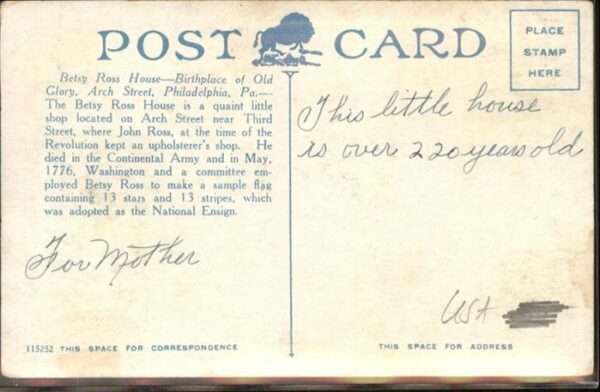 POST CARD
PLACE
STAMP
HERE
Betsy Ross House—Birthplace of Old
Glory, Arch Street, Philadelphia, Pa.—
The Betsy Ross House is a quaint little
shop located on Arch Street near Third
Street, where John Ross, at the time of the
Revolution kept an upholsterer's shop. He
died in the Continental Army and in May,
1776, Washington and a committee em-
ployed Betsy Ross to make a sample flag
containing 13 stars and 13 stripes, which
was adopted as the National Ensign.
For Mother
This little house
is over 220 years old
USA
115252 THIS SPACE FOR CORRESPONDENCE
THIS SPACE FOR ADDRESS